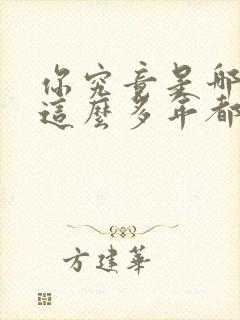 你究竟是哪
這麼多年都
方建華